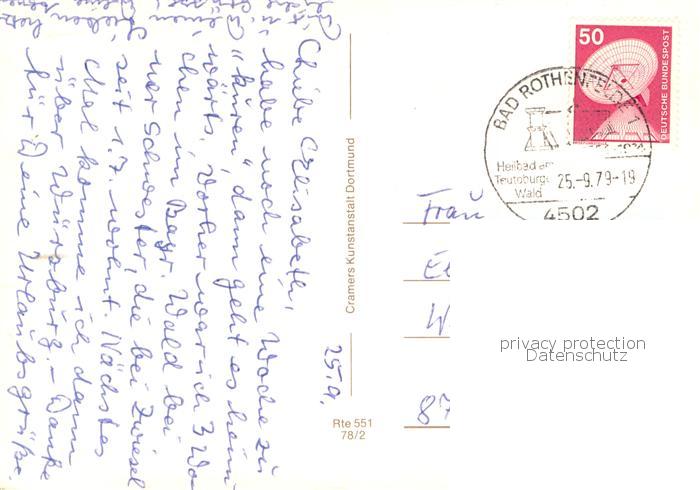 25.9.
Liebe Elisabeth,
habe noch eine Woche zu
"kuren", dann geht es heim-
wärts. Vorher war ich 3 Wo-
chen im Bayr. Wald bei
ner Schwester, die bei Zwiesel
seit 1.7. wohnt. Nächstes
Mal komme ich dann
über Würzburg. – Danke
für Deine Urlaubsgrüße.
Cramers Kunstanstalt Dortmund
Rte 551
78/2
50
DEUTSCHE BUNDESPOST
BAD ROTHENFELDE 1
Heilbad am
Teutoburger
Wald
25.-9.79-19
4502
Frau
El
W
87
privacy protection
Datenschutz